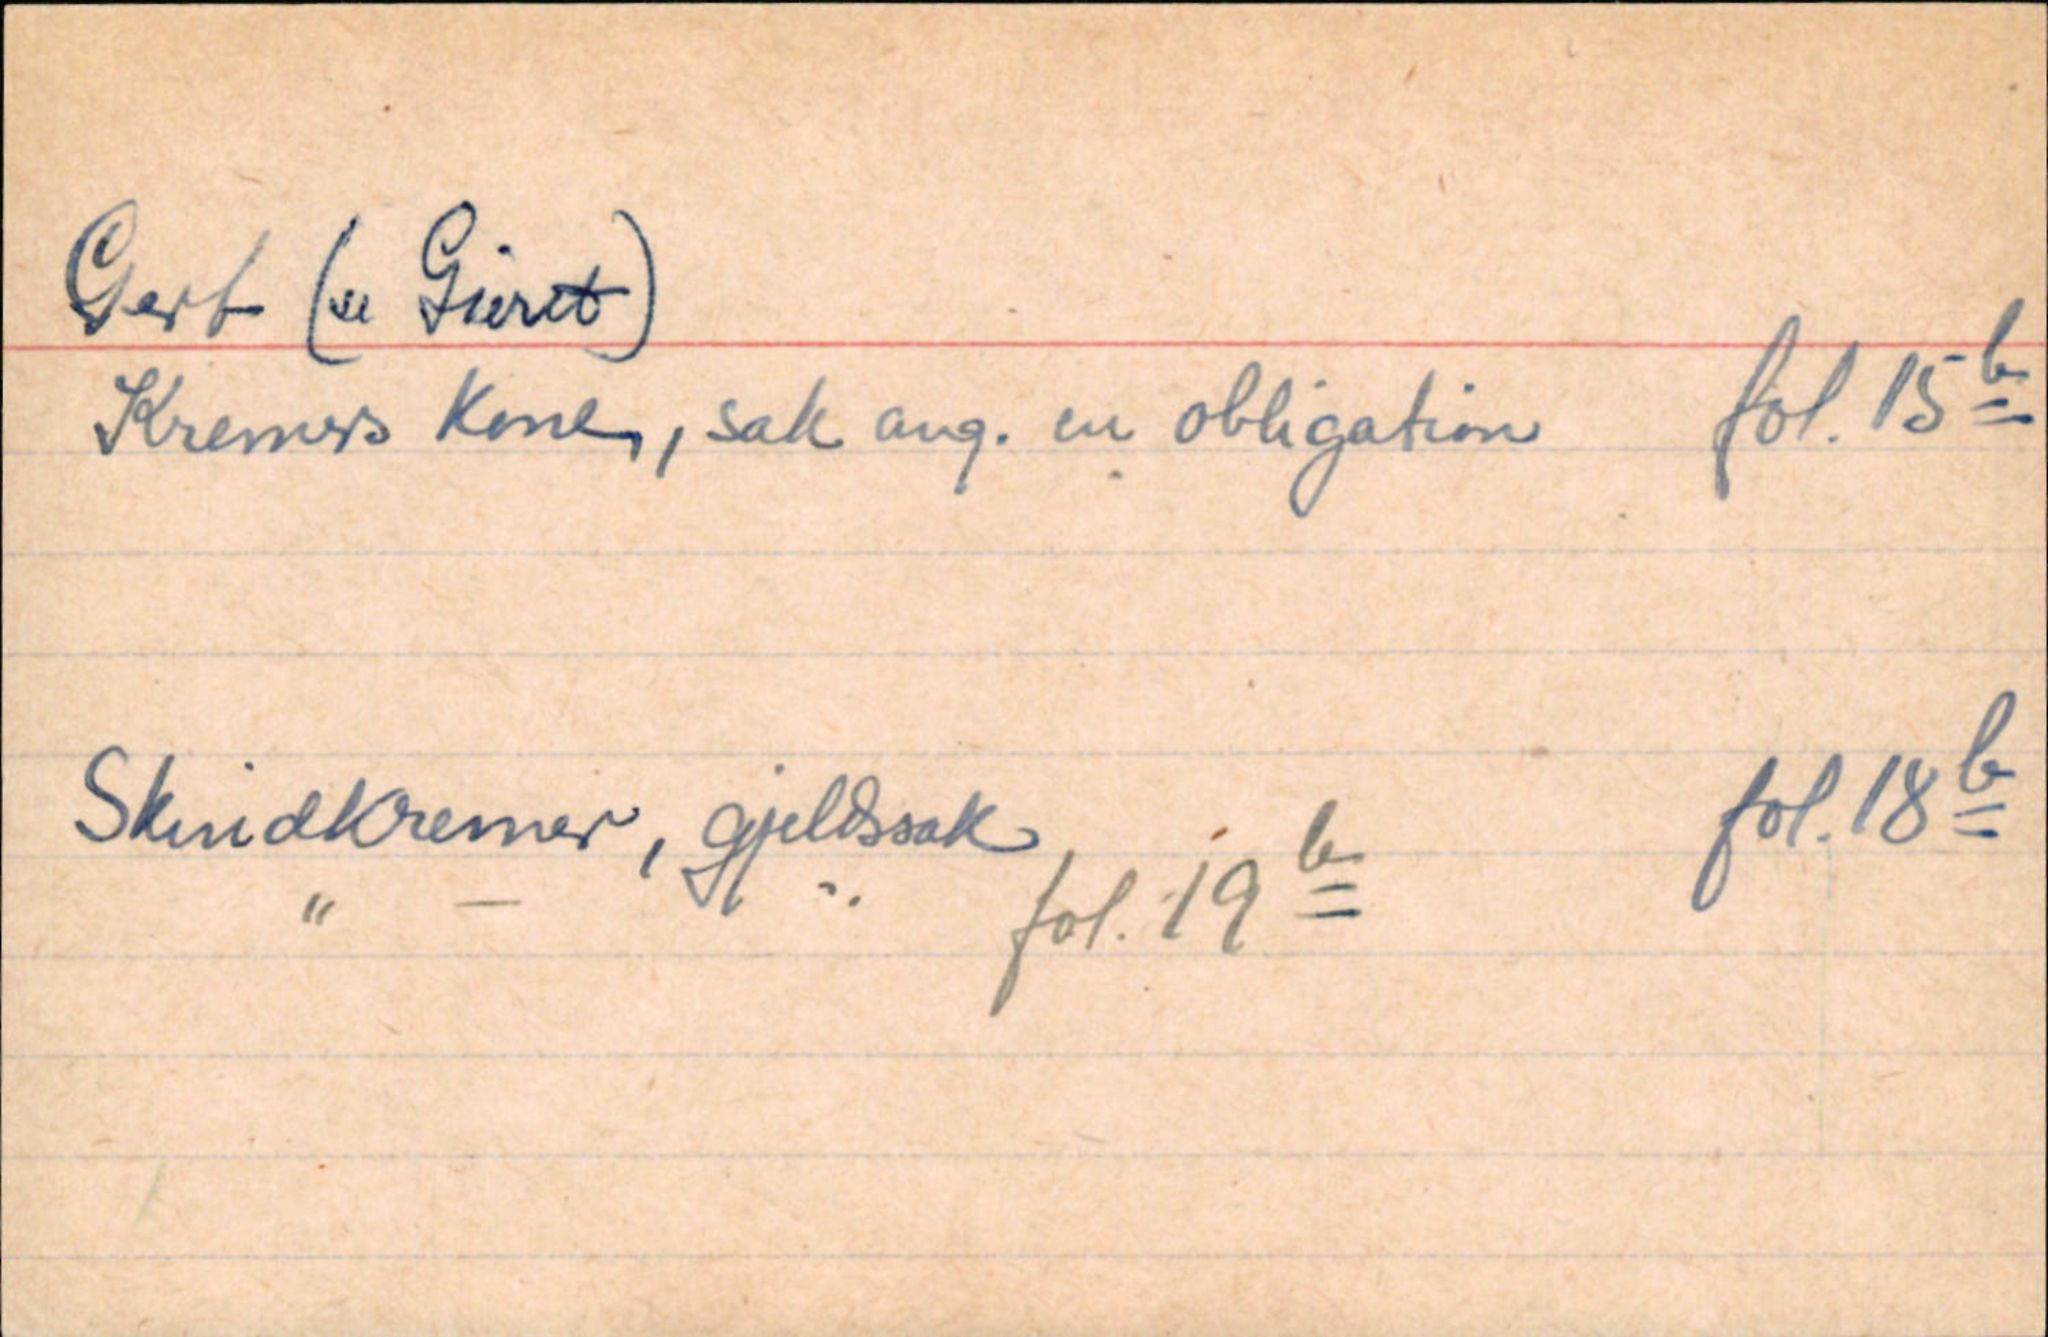 Gert (se Gieret)
Kremers kone, sak ang. en obligation fol. 15b
Skindkremer, gjeldssak fol. 18b
" — " fol. 19b